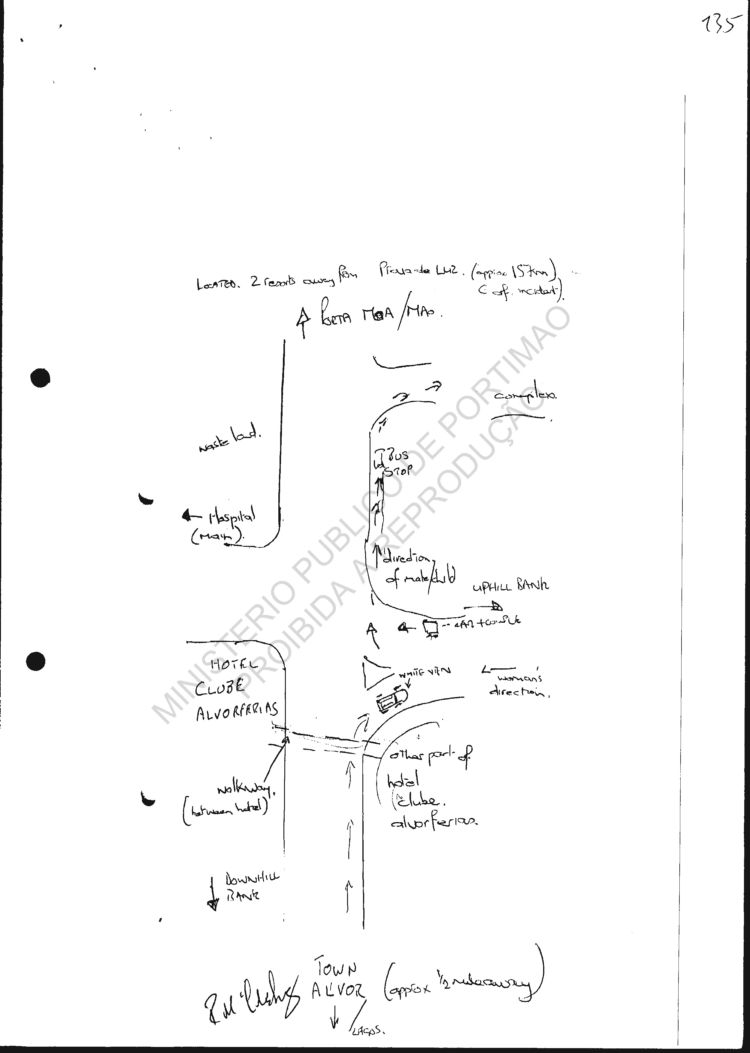 135
LOCATED. 2 resorts away from Priaia-de LUZ. (approx 15km)
C of. incident).
PORTA MOA/MAO.
complex.
waste land.
BUS
STOP
← Hospital
(main).
direction
of male/child
UPHILL BANK
CAR + COUPLE
HOTEL
CLUBE
ALVORFERIAS
WHITE VAN
← woman's
direction.
other part of
hotel
clube.
alvorferias.
walkway.
(between hotel)
DOWNHILL
BANK
TOWN
ALVOR (approx 1/2 mile away)
LAGOS.
MINISTERIO PUBLICO DE PORTIMAO
PROIBIDA A REPRODUÇÃO